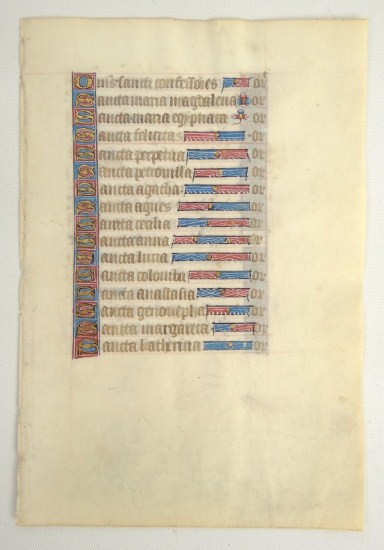 Oms sancti confessores or
Sancta maria magdalena or
Sancta maria egyptiaca or
Sancta felicitas or
Sancta perpetua or
Sancta petronilla or
Sancta agatha or
Sancta agnes or
Sancta cecilia or
Sancta anna or
Sancta lucia or
Sancta columba or
Sancta anastasia or
Sancta genouepha or
Sancta margareta or
Sancta katherina or